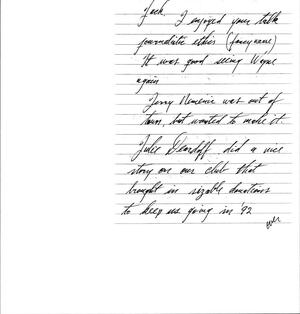 Jack,
I enjoyed your talk
journalistic ethics (funny name)
It was good seeing Wayne
again
Jerry was out of
town, but wanted to make it.
Julie Deardorff did a nice
story on our club that
brought in sizable donations
to keep us going in '92